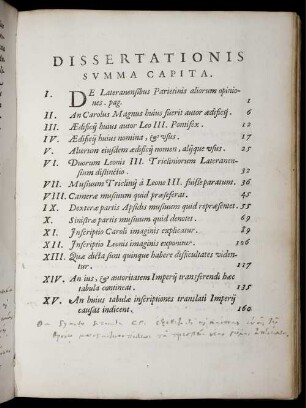 DISSERTATIONIS
SVMMA CAPITA.
I. DE Lateranensibus Parietinis aliorum opinio-
nes. pag. 1
II. An Carolus Magnus huius fuerit autor ædificij. 6
III. Ædificij huius autor Leo III. Pontifex. 12
IV. Ædificij huius nomina, & vsus. 17
V. Aliorum eiusdem ædificij nomen, aliique vsus. 25
VI. Duorum Leonis III. Tricliniorum Lateranen-
sium distinctio. 32
VII. Musiuum Triclinij à Leone III. fuisse paratum. 36
VIII. Cameræ musiuum quid præseferat. 45
IX. Dexteræ partis Apsidis musiuum quid repræsenset. 55
X. Sinistræ partis musiuum quid denotet. 69
XI. Inscriptio Caroli imaginis explicatur. 89
XII. Inscriptio Leonis imaginis exponitur. 106
XIII. Quæ dicta sunt quinque habere difficultates viden-
tur. 117
XIV. An ius, & autoritatem Imperij transferendi hæc
tabula contineat. 135
XV. An huius tabulæ inscriptiones translati Imperij
causas indicent. 160